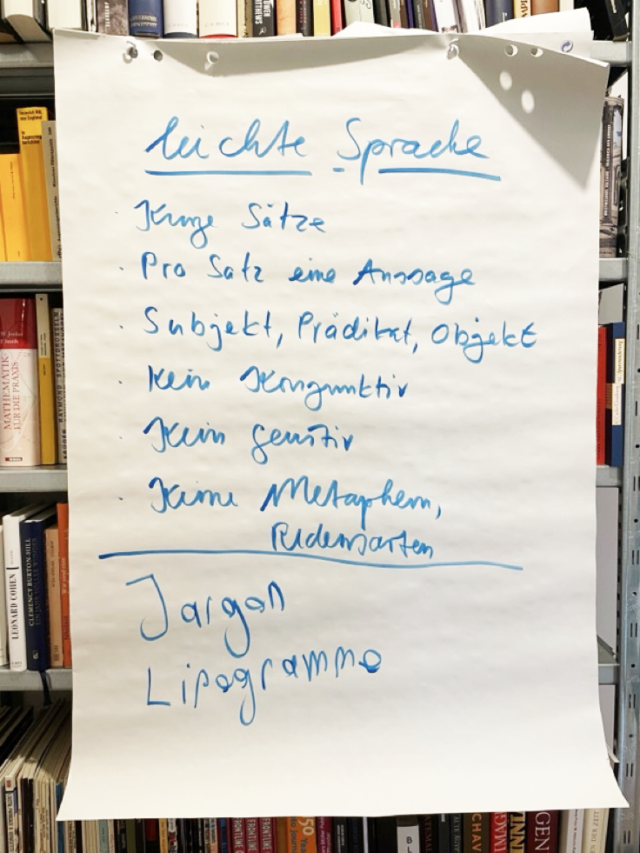 leichte Sprache
· Kurze Sätze
· Pro Satz eine Aussage
· Subjekt, Prädikat, Objekt
· Kein Konjunktiv
· Kein Genitiv
· Keine Metaphern,
Redensarten
Jargon
Lipogramme
MATHEMATIK
FÜR DIE PRAXIS
LEONARD COHEN
CLEMENCY BURTON-HILL